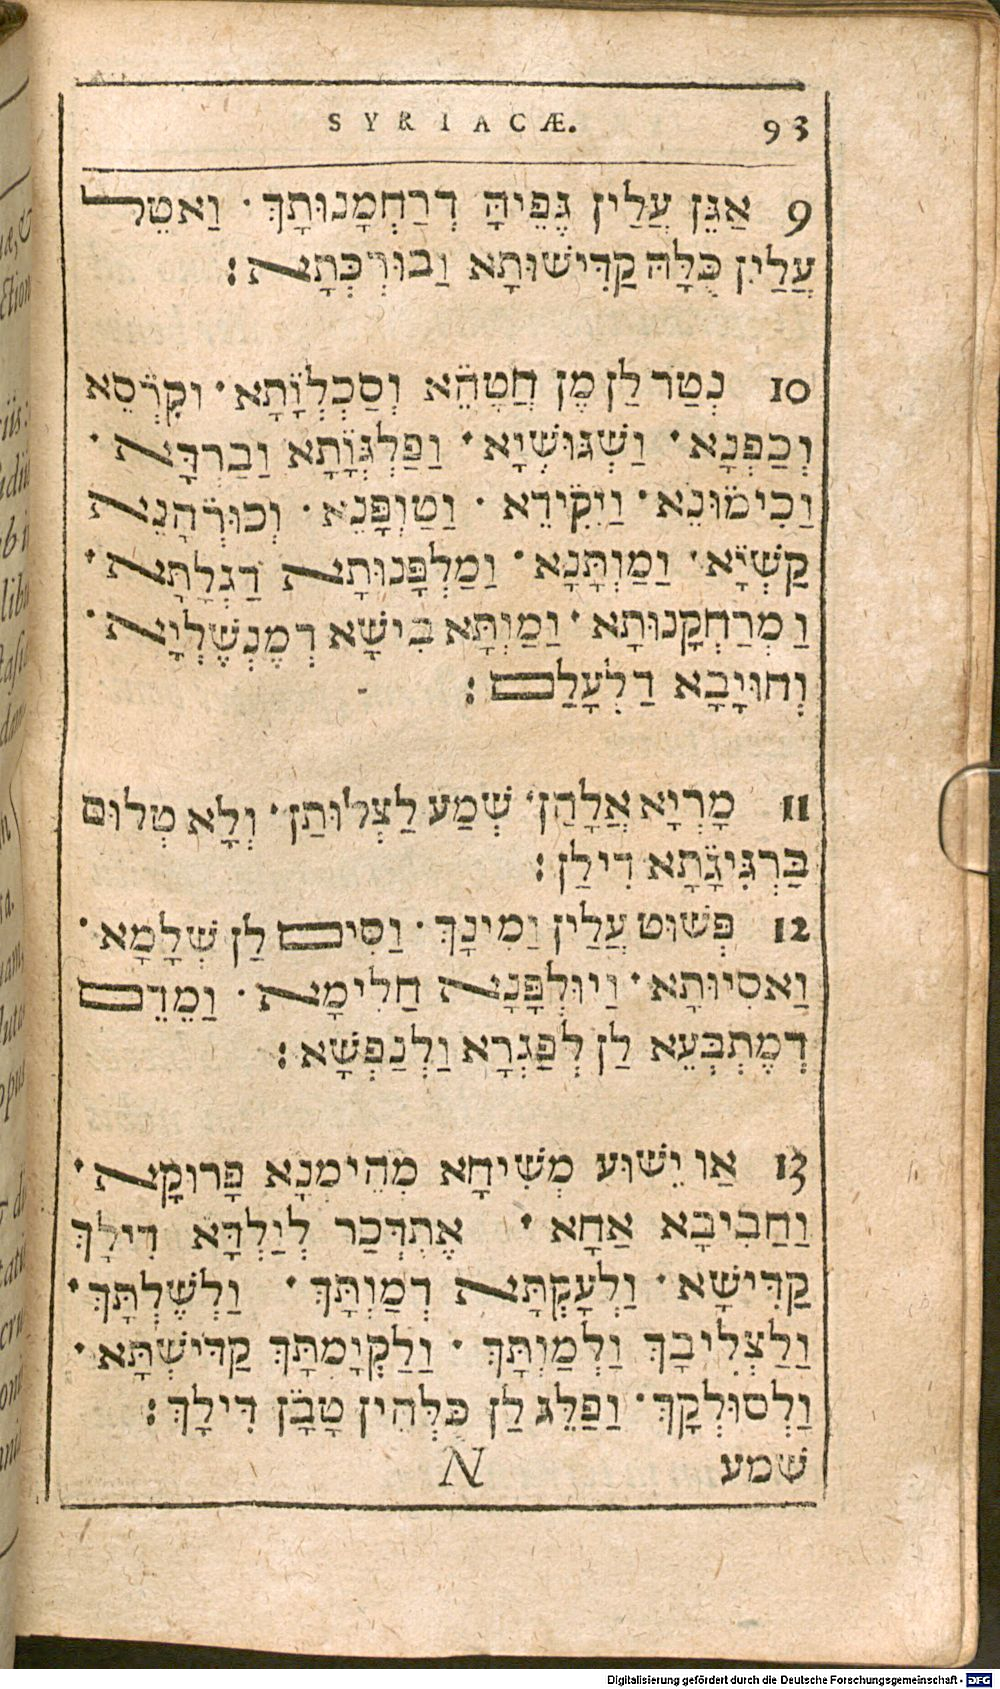 SYRIACÆ. 93
9 אַגֵּן עֲלַין גֶּפֵּיהָּ דְרַחְמָנוּתָךְ · וַאטֵל
עֲלַיןִ כֻּלָּהּ קַדִּישׁוּתָא וַבוּרְכְּתָא :
10 נְטַר לַן מֶן חֲטָהֵא וְסַכְלְוָתָא · וקִרְסֵא
וְכַפְנָא · וַשְׁגוּשְׁיָא · וַפַלְגְּוָתָא וַבַרְדָּא ·
וַכִימוּנֵא · וַיִקִידֵא · וַטַוְפָּנֵא · וְכוּרְהָנֵא
קַשְׁיָא · וַמַוְתָּנָא · וַמַלְפָּנוּתָא דַגְלָתָא ·
וַמְרַחְקָנוּתָא · וַמַוְתָּא בִישָׁא דְמֶנְשֶׁלְיָא ·
וְחוּיָבָא דַלְעָלַם :
11 מָרְיָא אֲלָהַן · שְׁמַע לַצְלוּתַן · וְלָא טְלוּם
בַּרְגִּיגָתָא דִילַן :
12 פְּשׁוּט עֲלַין יַמִינָךְ · וַסִים לַן שְׁלָמָא ·
וַאסִיוּתָא · וַיוּלְפָּנָא חַלִימָא · וַמֶדֵם
דְמֶתְבְּעֵא לַן לְפַגְרָא וַלְנַפְשָׁא :
13 אַו יֵשׁוּע מְשִׁיחָא מְהֵימְנָא פָּרוּקָא ·
וַחַבִיבָא אַחָא · אֶתִדְּכַר לְיַלְדָּא דִילָךְ
קַדִּישָׁא · וַלְעָקְתָּא דְמַוְתָּךְ · וַלְשֶׁלְתָּךְ ·
וַלַצְלִיבָךְ וַלְמַוְתָּךְ · וַלַקְיָמְתָּךְ קַדִּישְׁתָּא ·
וַלְסוּלְקָךְ · וַפַלֵּג לַן כֻּלְּהֵין טָבָן דִּילָךְ :
N שׁמע
Digitalisierung gefördert durch die Deutsche Forschungsgemeinschaft - DFG